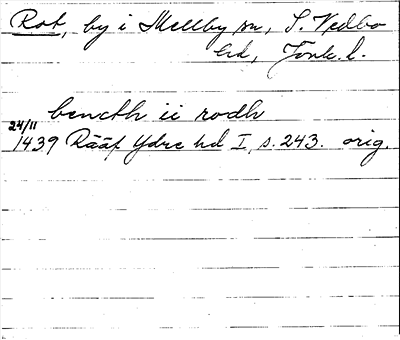 Rot, by i Skellby sn, S. Vedbo
hd, Jönk. l.
bencth ii rodh
24/11
1439 Rääf Ydre hd I, s. 243. orig.